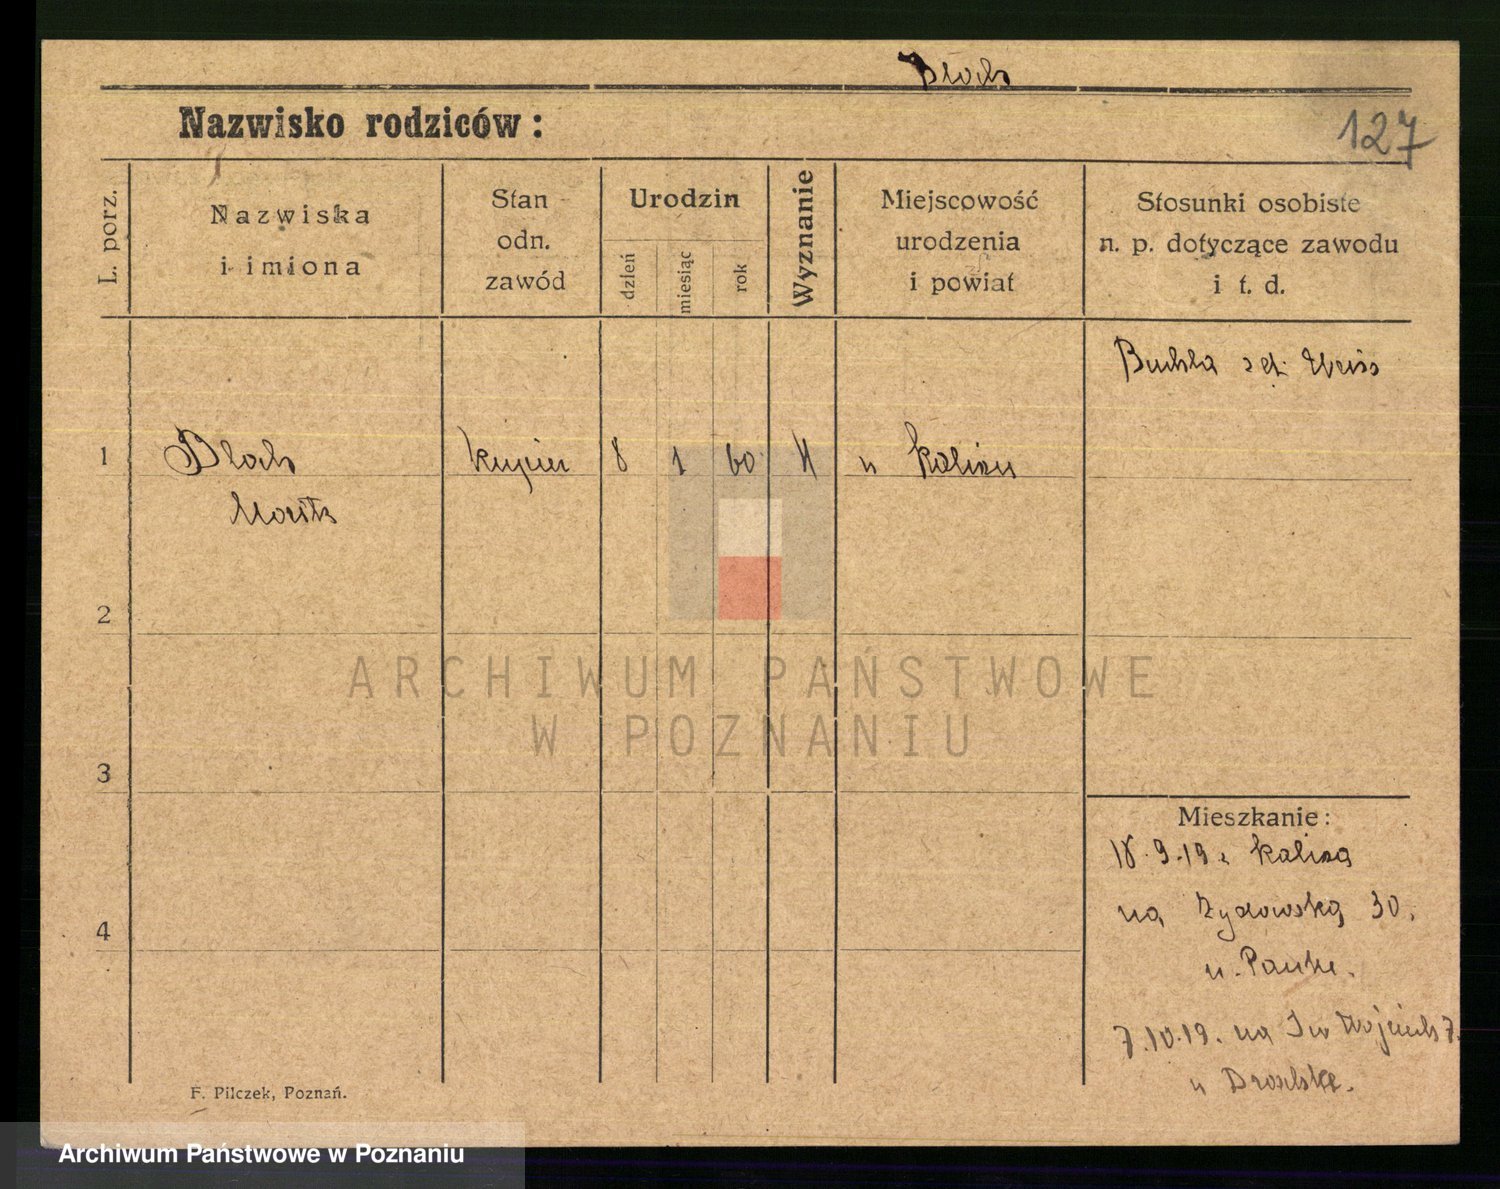 Bloch
Nazwisko rodziców:
127
L. porz.
Nazwiska
i imiona
Stan
odn.
zawód
Urodzin
dzień
miesiąc
rok
Wyznanie
Miejscowość
urodzenia
i powiat
Stosunki osobiste
n. p. dotyczące zawodu
i t. d.
1
Bloch
Moritz
kupiec
8
1
60
w Kaliszu
Weiss
2
3
4
Mieszkanie:
18.9.19 z Kalisza
na Żydowską 30.
7.10.19. na Św Wojciech 7.
F. Pilczek, Poznań.
ARCHIWUM PAŃSTWOWE
W POZNANIU
Archiwum Państwowe w Poznaniu